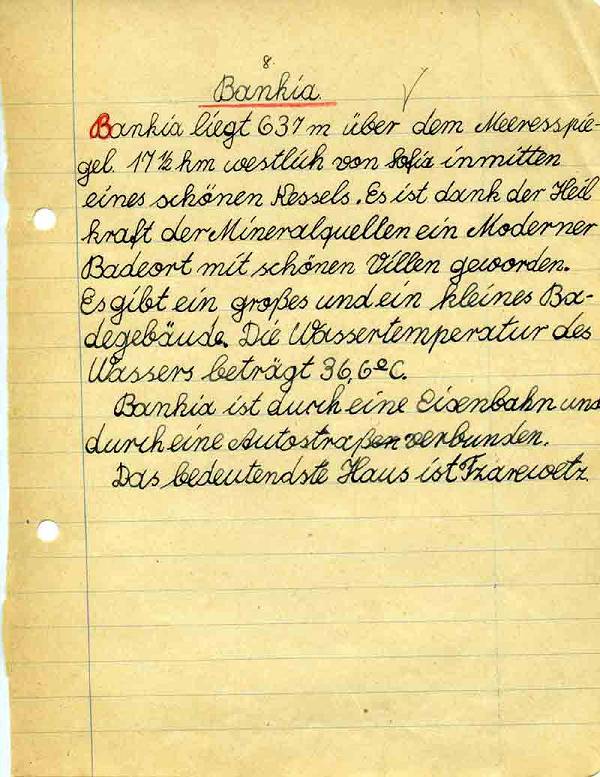 8.
Bankia.
Bankia liegt 637 m über dem Meeresspie-
gel. 17 ½ km westlich von Sofia inmitten
eines schönen Kessels. Es ist dank der Heil
kraft der Mineralquellen ein Moderner
Badeort mit schönen Villen geworden.
Es gibt ein großes und ein kleines Ba-
degebäude. Die Wassertemperatur des
Wassers beträgt 36,6°C.
Bankia ist durch eine Eisenbahn und
durch eine Autostraßen verbunden.
Das bedeutendste Haus ist Tzarewetz.